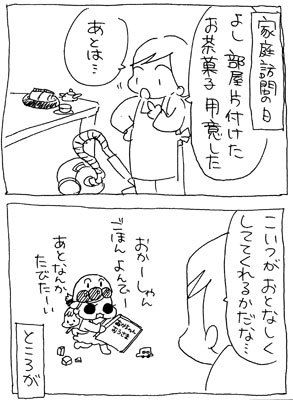 家庭訪問の日
よし 部屋片付けた
お茶菓子 用意した
あとは…
こいつが おとなしく
しててくれるかだな…
おかーしゃん
ごほん よんでー
あとなんか
たびたーい
ところが